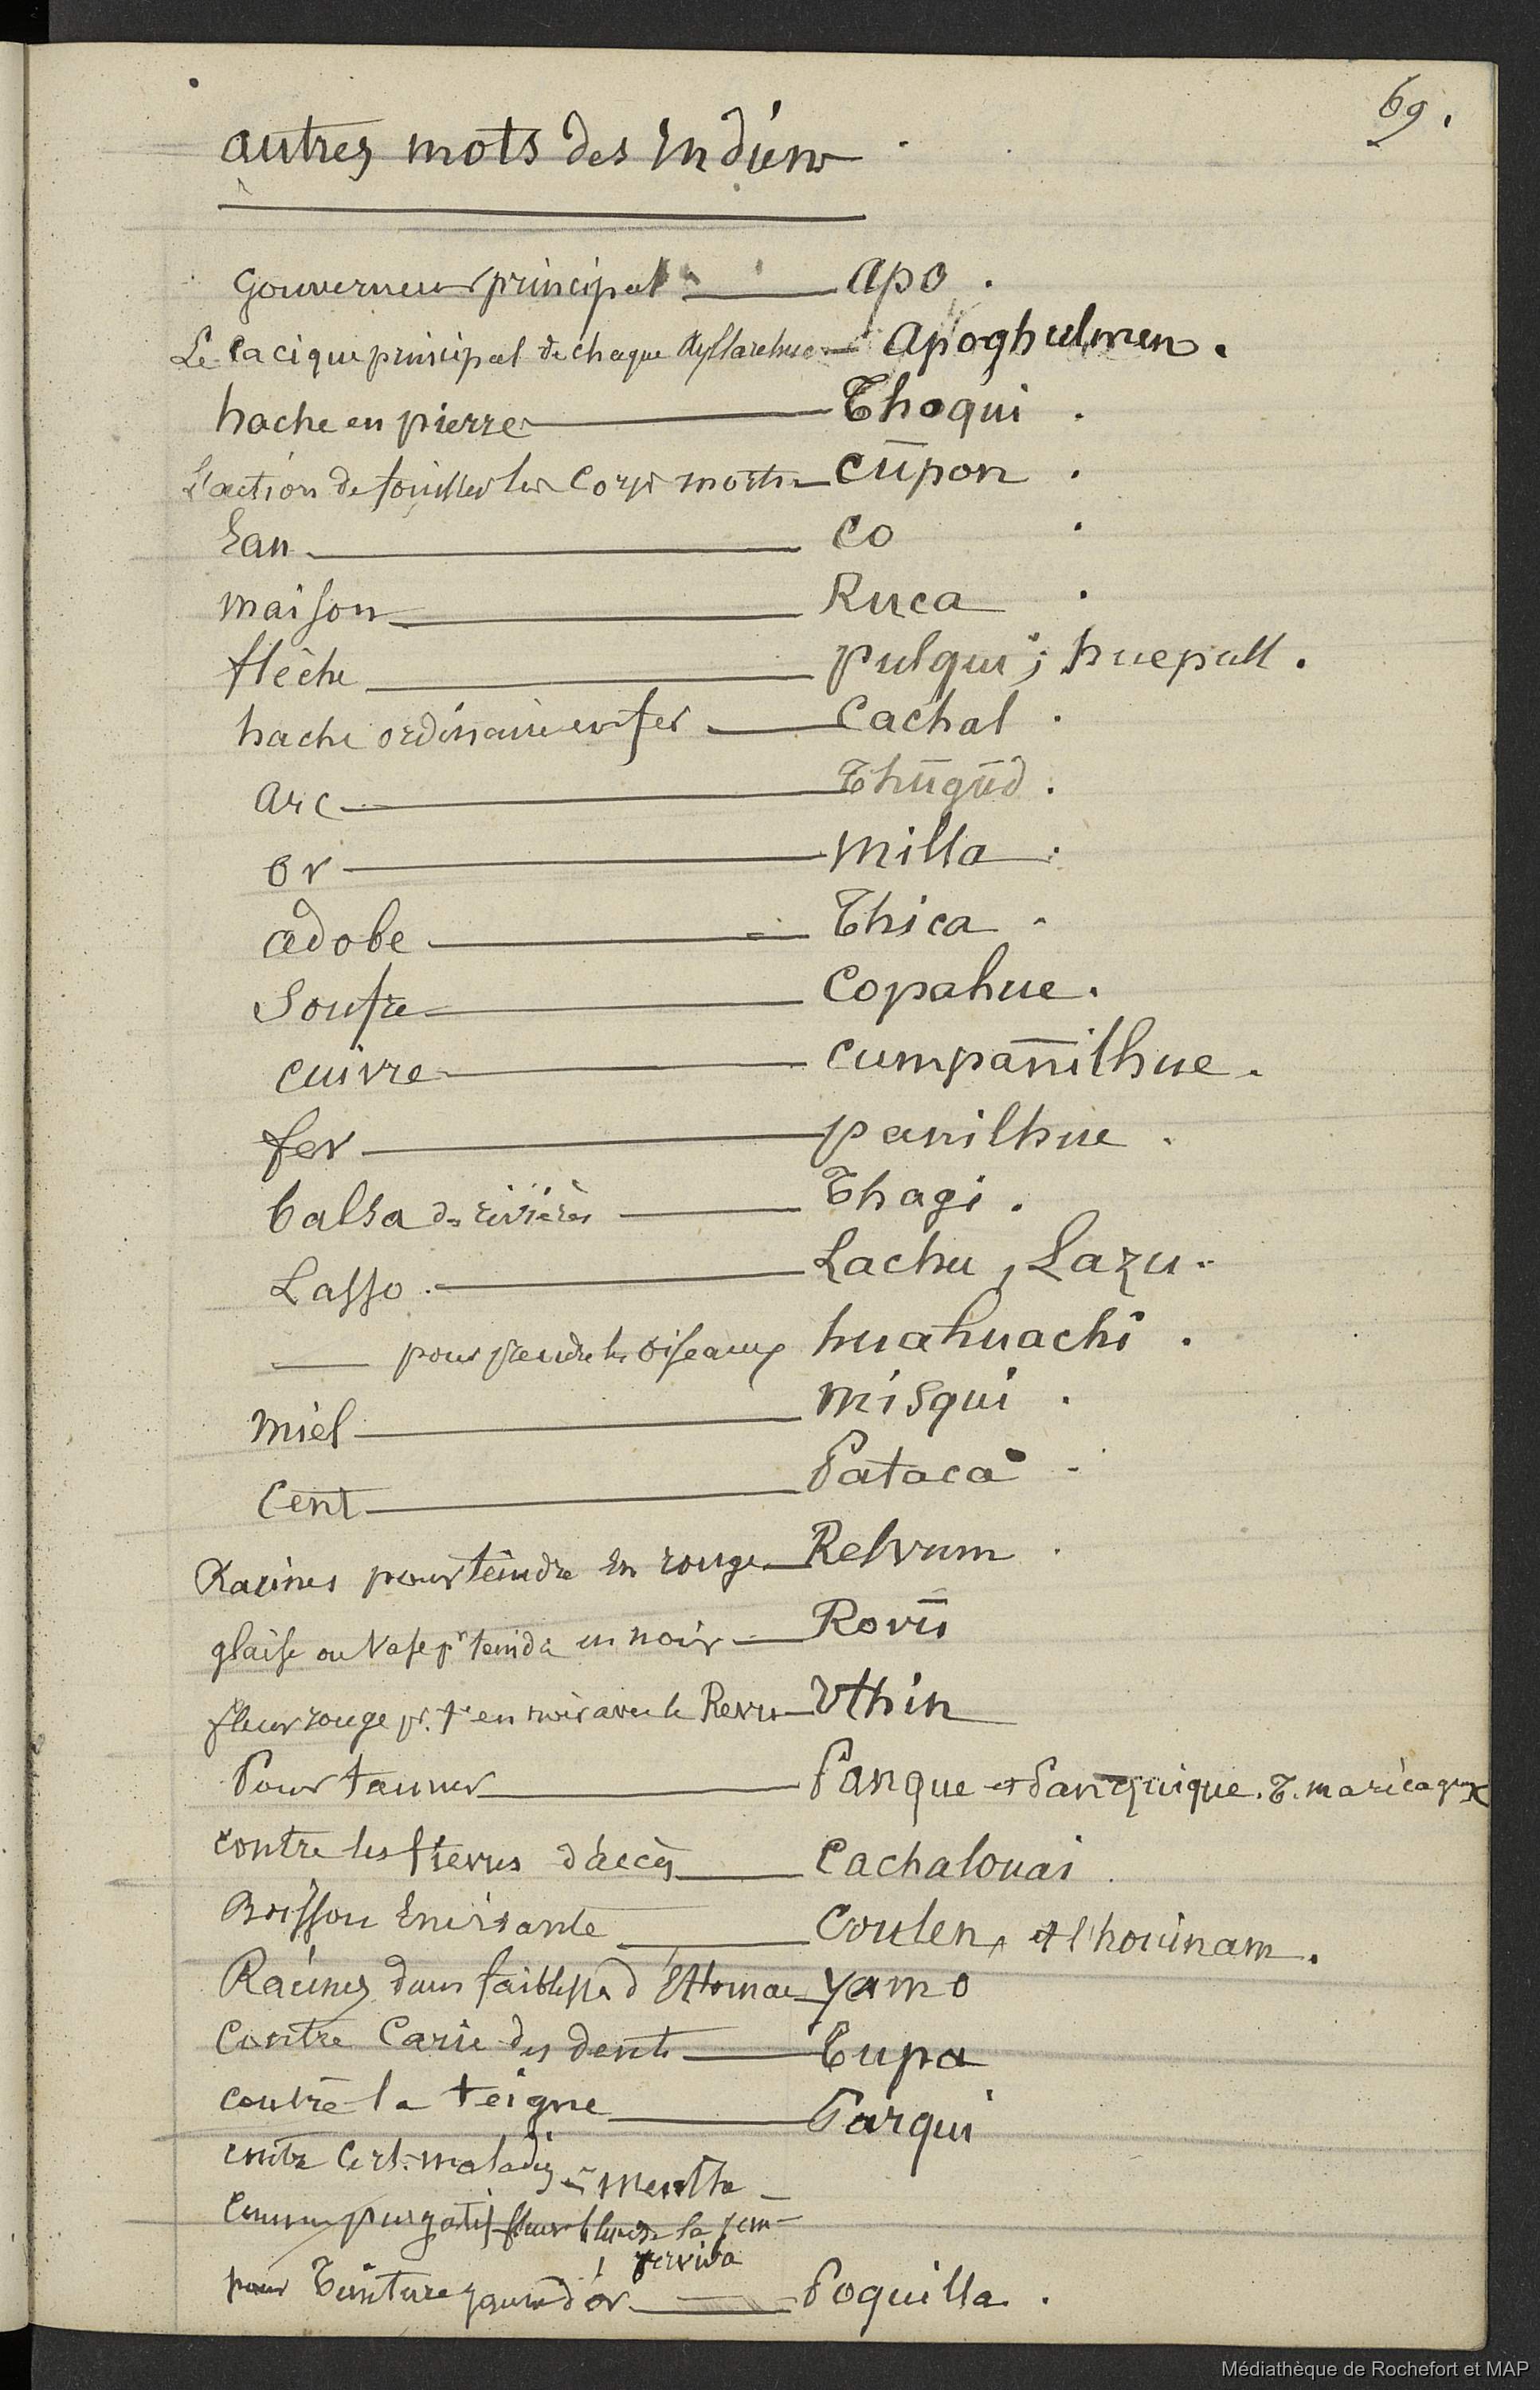 69.
autres mots des Indiens
Gouverneur principal — apo.
Le Cacique principal de chaque Ayllarehue — Apoghulmen.
hache en pierre — Thoqui.
L'action de fouiller les Corps morts — Cüpon.
Eau — Co
maison — Ruca
flèche — pulqui; huepull.
hache ordinaire en fer — Cachal.
arc — Thügüd.
or — milla.
adobe — Thica
Soufre — Copahue.
cuivre — cumpañilhue.
fer — panilhue.
balsa des rivières — Thagi.
Lasso — Lachu, Lazu.
— pour prendre les oiseaux huahuachi.
miel — misqui.
Cent — Pataca
Racines pour teindre en rouge — Relvum
glaise ou Vase pr teindre en noir — Rovü
fleur rouge pr. tre en noir avec le Revu — Uthin
Pour tanner — Panque et Panquique. T. marécageux
contre les fièvres d'accès — Cachalouai
Boisson Enivrante — Coulen, et l'houinam.
Racines dans faiblesse d'Estomac — yamo
Contre Carie des dents — Tupa
contre la teigne — Parqui
contre Cert. maladies — mentha
Comme purgatif fleur blanche la
pour Teinture jaune d'or — Poquilla.
Médiathèque de Rochefort et MAP